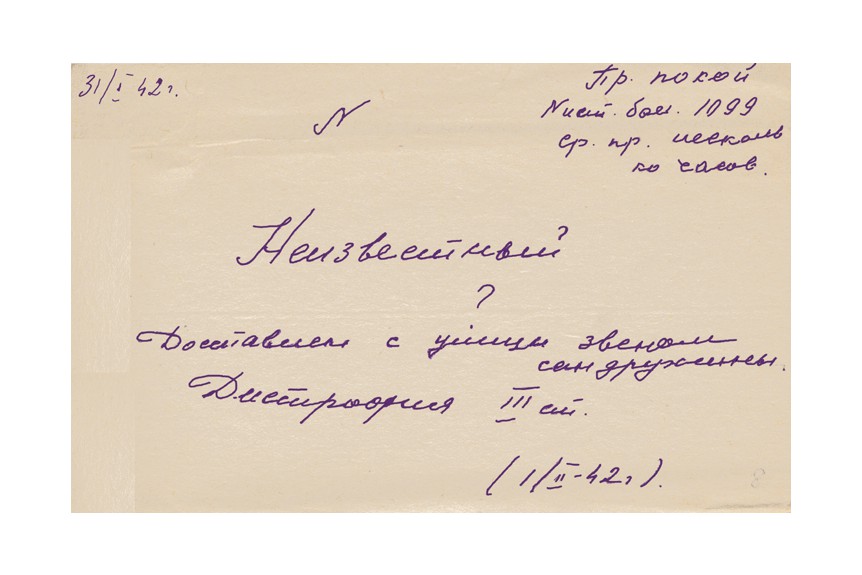 31/I 42 г.
Пр. покой
N ист. бол. 1099
ср. пр. несколь
ко часов.
N
Неизвестный
?
Доставлен с улицы звеном
сандружины.
Дистрофия III ст.
(1/II-42 г).